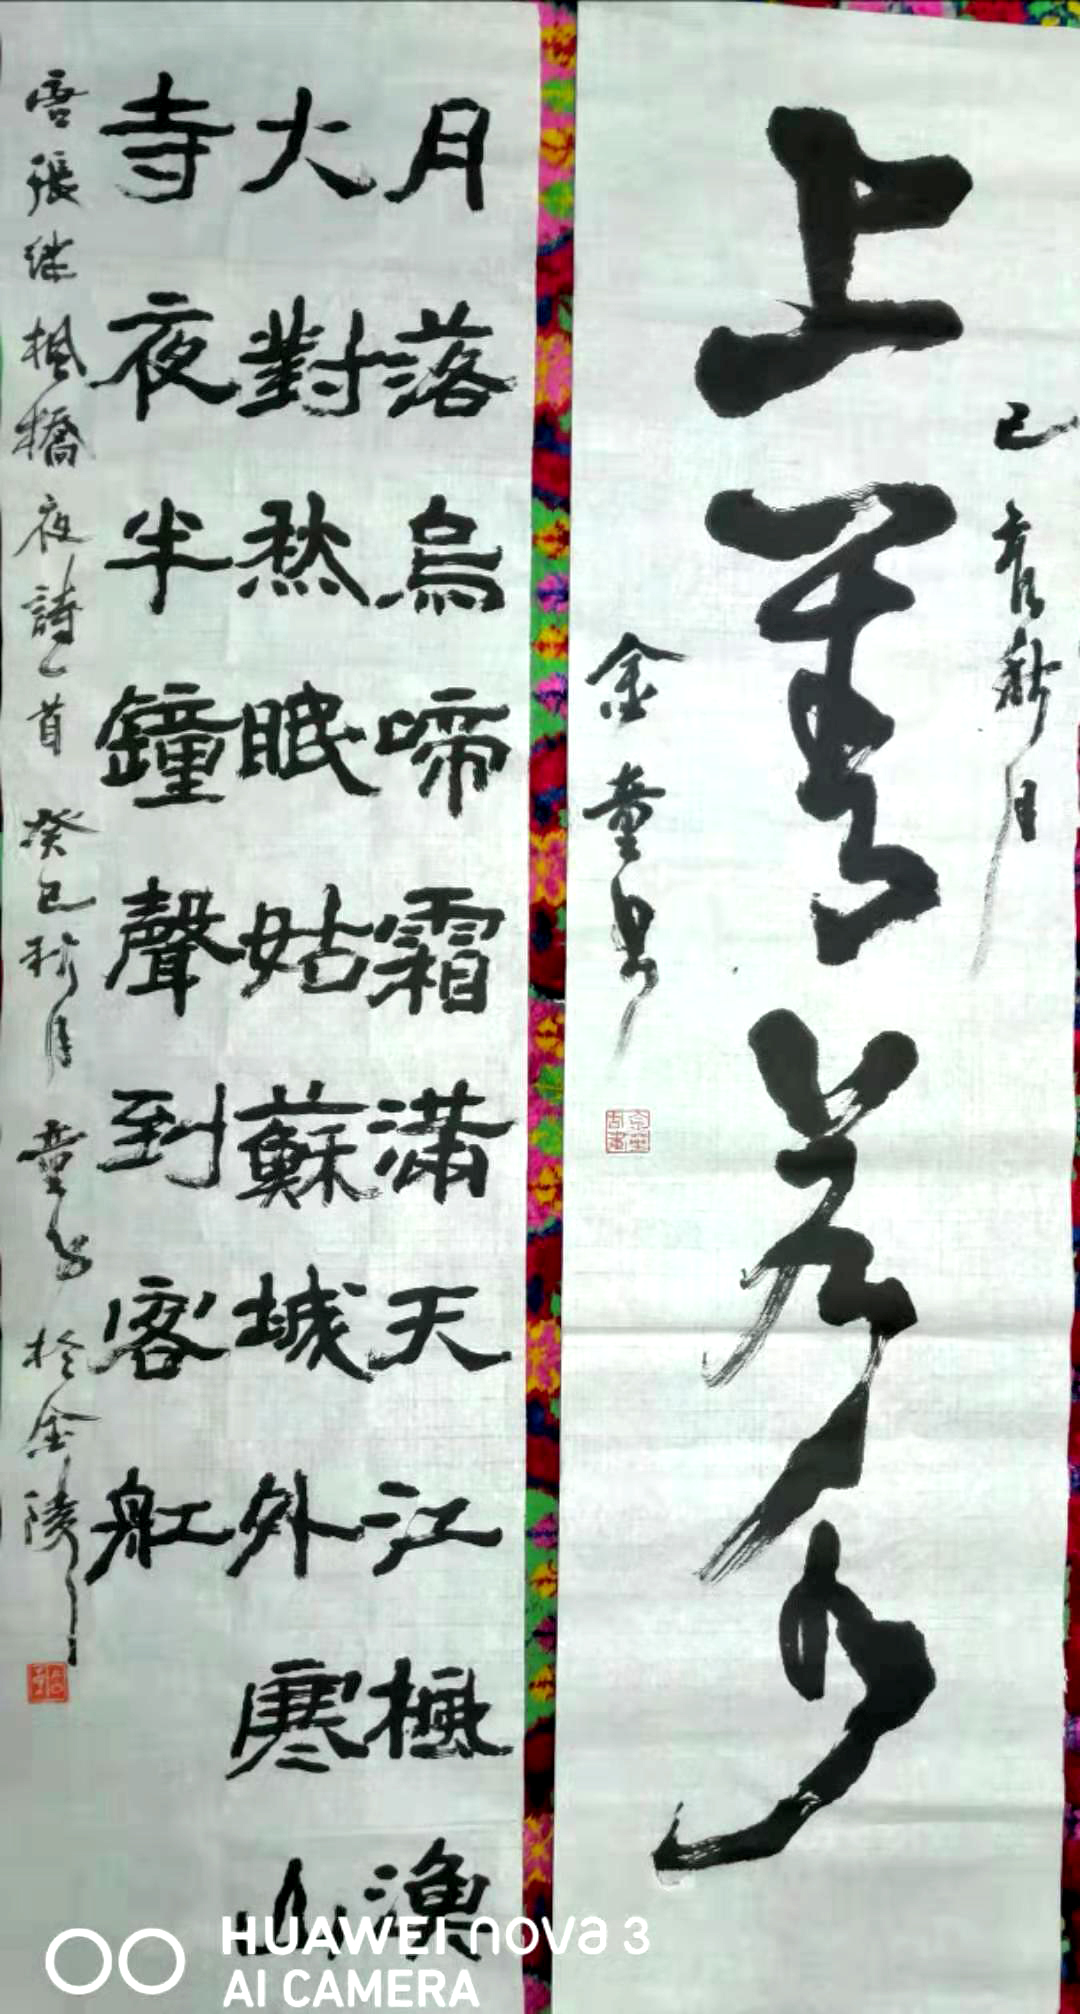 己亥秋月
上善若水
金童書
月落烏啼霜滿天江楓漁
火對愁眠姑蘇城外寒山
寺夜半鐘聲到客舡
唐張继楓橋夜詩一首 癸巳秋月 童書於金陵
HUAWEI nova 3
AI CAMERA